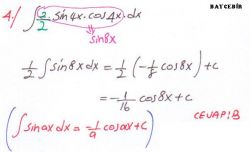 BAYCEBİR
4/ ∫ 2/2 · sin4x · cos4x · dx
sin8x
1/2 ∫ sin8x dx = 1/2 (-1/8 cos8x) + c
= -1/16 cos8x + c
CEVAP: B
(∫ sinax dx = -1/a cosax + c)